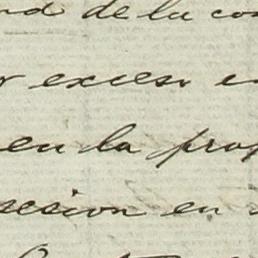 d de la co
r exceso e
en la prop
sesion en